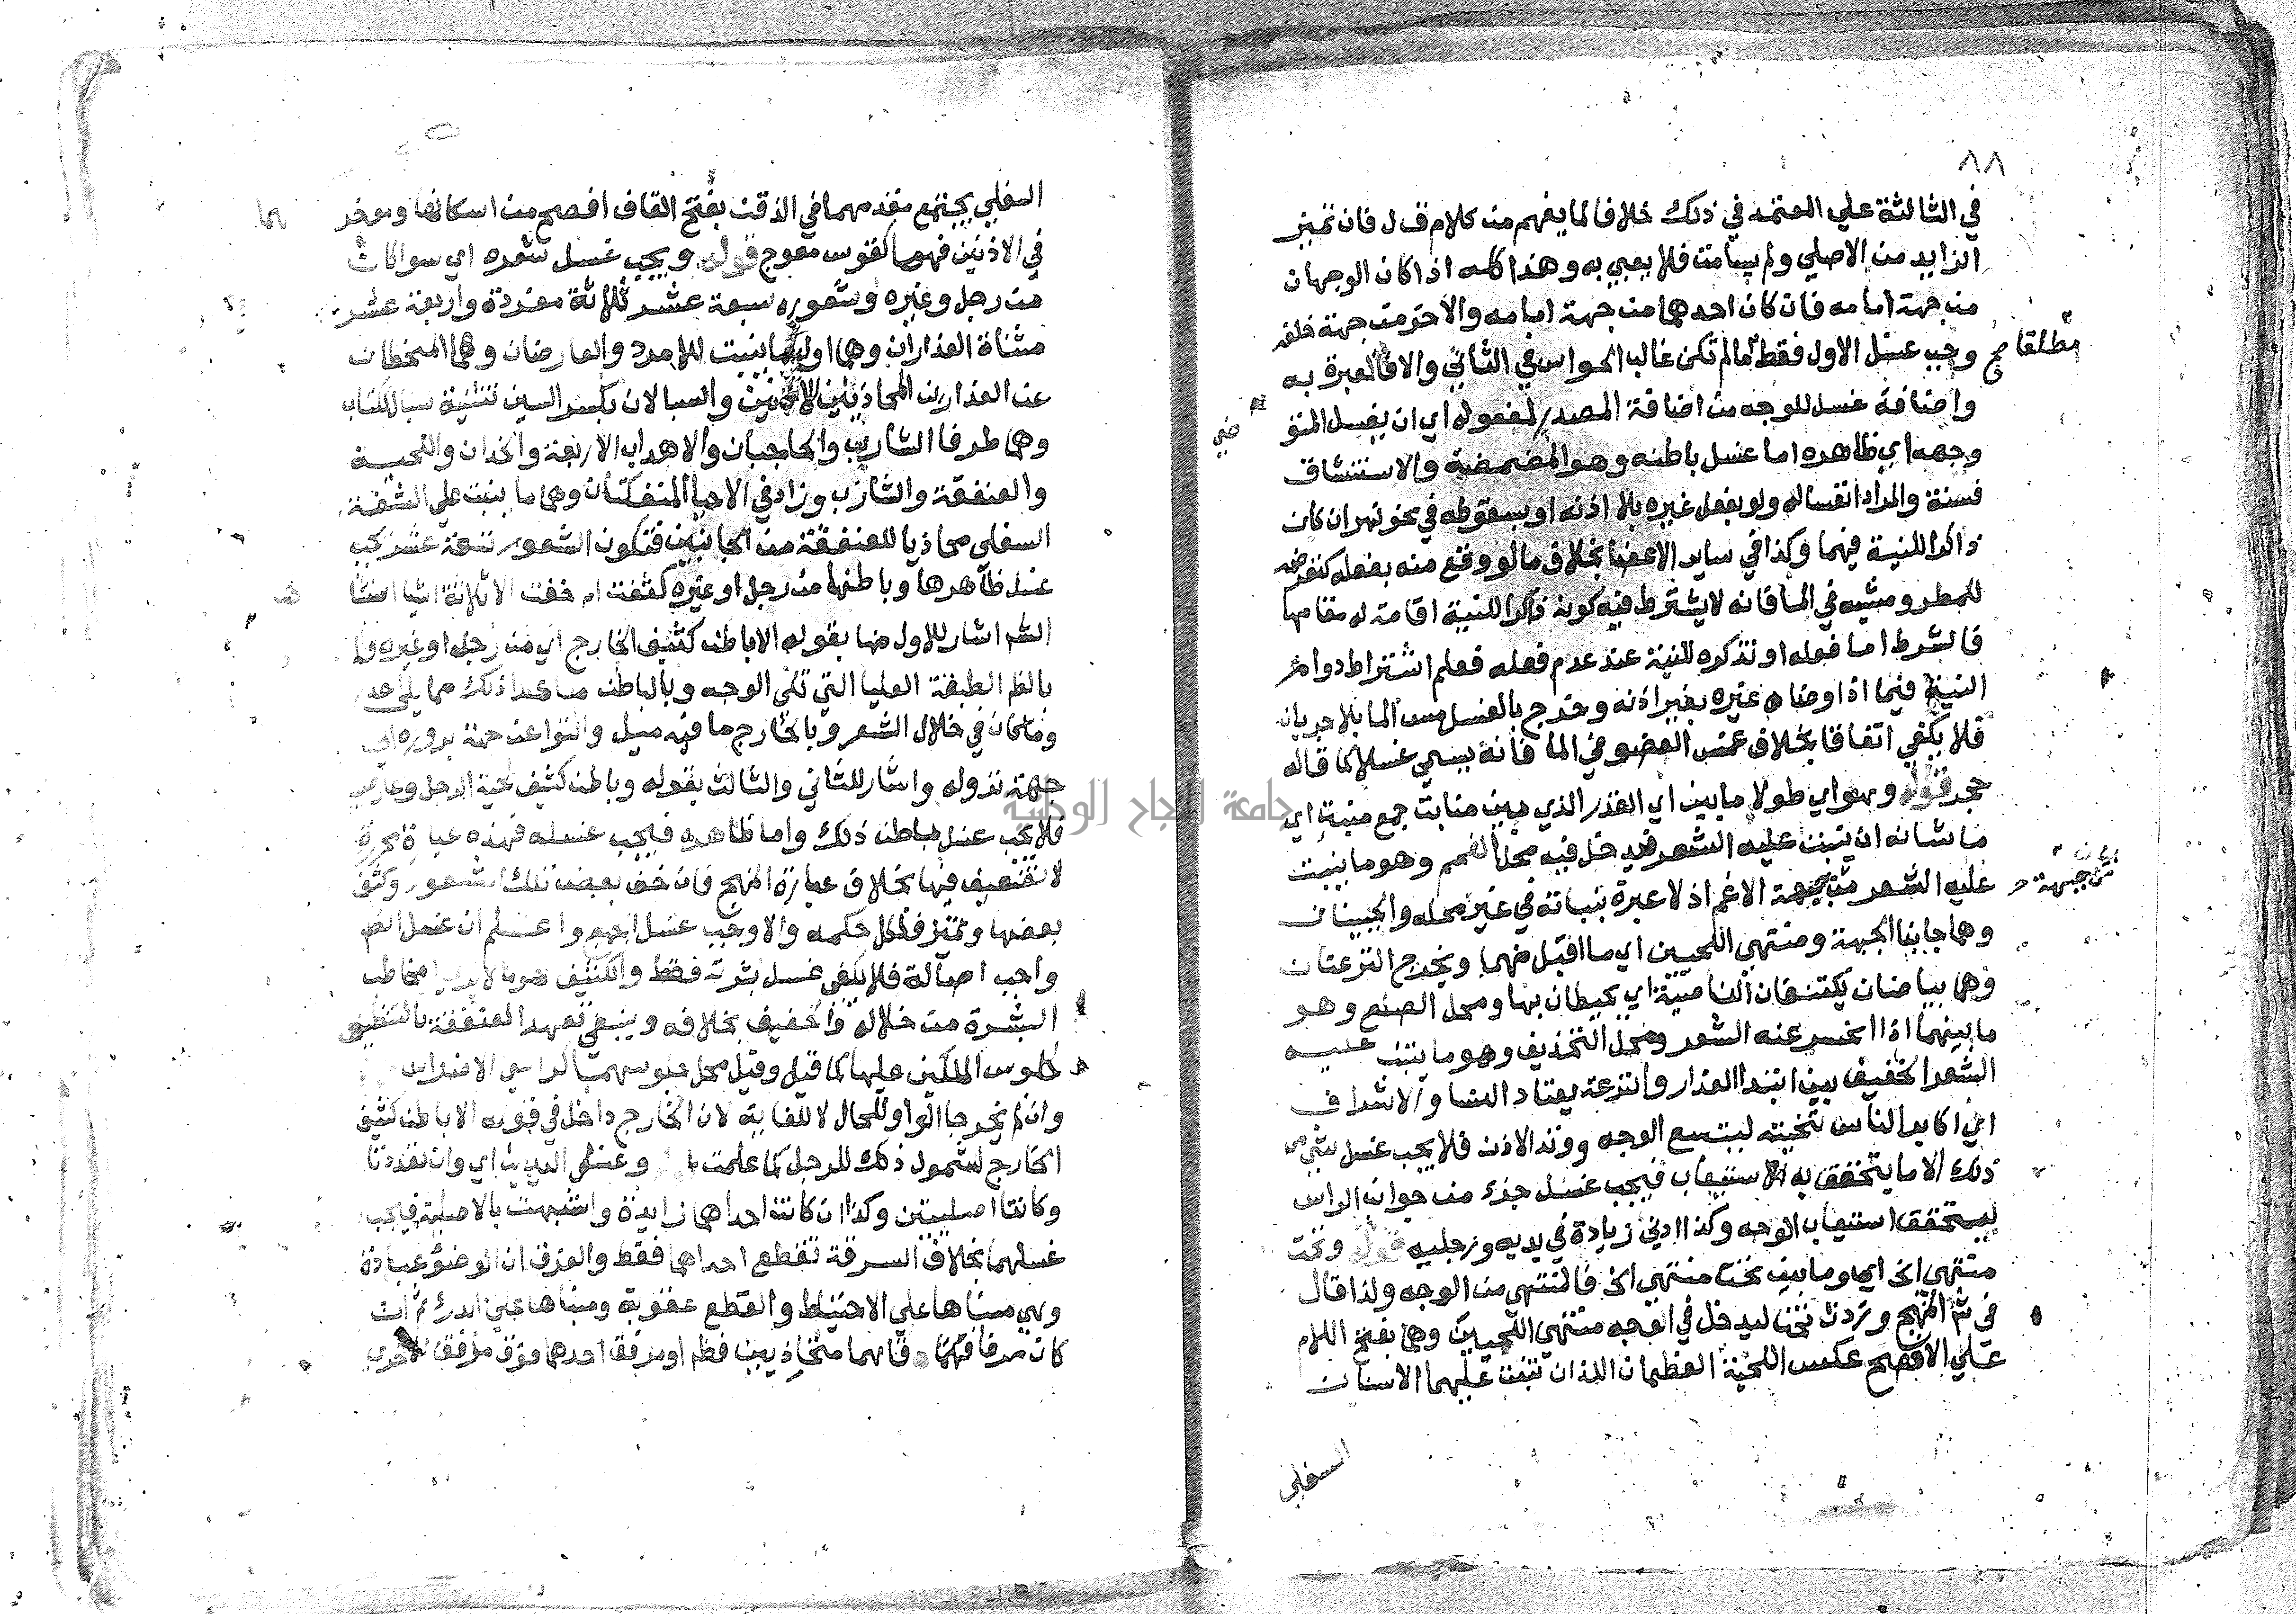 ٨٨
في الثالثة علي المعتمد في ذلك خلافا لما يفهم من كلام ق ل فان تميز
الزايد من الاصلي ولم يسامت فلا يعبي به وهذا كله اذا كان الوجهان
من جهة امامه فان كان احدهما من جهة امامه والاخر من جهة خلفه
وجب غسل الاول فقط ما لم تكن غالب الحواس في الثاني والا فالعبرة به
مطلقا صح
واضافة غسل للوجه من اضافة المصدر لمفعوله اي ان يغسل المتو
ضي
وجهه اي ظاهره اما غسل باطنه وهو المضمضة والاستنشاق
فسنة والمراد انغساله ولو بفعل غيره بلا اذنه او بسقوطه في نحو نهر ان كان
ذاكرا للنية فيهما وكذا في ساير الاعضا بخلاف ما لو وقع منه بفعله كتعرضه
للمطر ومشيه في الما فانه لا يشترط فيه كونه ذاكرا للنية اقامة له مقامها
فالشرط اما فعله او تذكره للنية عند عدم فعله فعلم اشتراط دوام
النية فيما اذا وضاه غيره بغير اذنه وخرج بالغسل مس الما بلا جريان
فلا يكفي اتفاقا بخلاف غمس العضو في الما فانه يسمي غسلا كما قاله
حجر قوله وهو اي طولا ما بين اي القدر الذي بين منابت جمع منبت اي
ما شانه ان تنبت عليه الشعر فيدخل فيه محل الغمم وهو ما ينبت
عليه الشعر من جبهة الاغم اذ لا عبرة بنباته في غير محله والجبينان
من جبهة
وهما جانبا الجبهة ومنتهي اللحيين اي ما اقبل منهما ويخرج النزعتان
وهما بياضان يكتنفان الناصية اي يحيطان بها ومحل الصلع وهو
ما بينهما اذا انحسر عنه الشعر ومحل التحذيف وهو ما ينبت عليه
الشعر الخفيف بين ابتدا العذار والنزعة يعتاد النسا والاشراف
اي اكابر الناس تنحيته ليتسع الوجه ووتد الاذن فلا يجب غسل شي من
ذلك الا ما يتحقق به الاستيعاب فيجب غسل جزء من جوانب الراس
ليتحقق استيعاب الوجه وكذا ادني زيادة في يديه ورجليه قوله وتحت
منتهي الخ اي وما بين تحت منتهي الخ فالمنتهي من الوجه ولذا قال
في شم المنهج وزدت تحت ليدخل في الوجه منتهي اللحيين وهما بفتح اللام
علي الافصح عكس اللحية العظمان اللذان تنبت عليهما الاسنان
السفلي
السفلي يجتمع مقدمهما في الذقن بفتح القاف افصح من اسكانها وموخر
هما
في الاذنين فهما كقوس معوج قوله ويجب غسل شعره اي سوا كان
من رجل وغيره وشعوره سبعة عشر ثلاثة مفردة واربعة عشر
مثناة العذاران وهما اول ما ينبت للامرد والعارضان وهما المنحطان
عن العذارين المحاذيين للاذنين والسبالان بكسر السين تثنية سبال ككتاب
وهما طرفا الشارب والحاجبان والاهداب الاربعة والخدان واللحية
والعنفقة والشارب وزاد في الاحيا المنفكتان وهما ما ينبت علي الشفة
السفلي محاذيا للعنفقة من الجانبين فتكون الشعور تسعة عشر يجب
غسل ظاهرها وباطنها من رجل او غيره كثفت او خفت الا ثلاثة اشيا استثنا
ها
الشم اشار للاول منها بقوله الا باطن كثيف الخارج اي من رجل او غيره
بالظم الطبقة العليا التي تلي الوجه وبالباطن ما عدا ذلك مما يلي
وما كان في خلال الشعر وبالخارج ما فيه ميل والتوا عن جهة بروزه اي
جهة نزوله واشار للثاني والثالث بقوله وباطن كثيف لحية الرجل وعارضيه
فلا يجب غسل باطن ذلك واما ظاهره فيجب غسله فهذه عبارة محررة
لا تضعيف فيها بخلاف عبارة المنهج فان خف بعض تلك الشعور وكثف
بعضها وتميز فلكل حكمه والا وجب غسل الجميع واعلم ان غسل
واجب اصالة فلا يكفي غسل بشرته فقط والكثيف هو ما لا يري مخاطب
البشرة من خلاله والخفيف بخلافه وينبغي تعهد العنفقة بالتنظيف
لجلوس الملكين عليها كما قيل وقيل محل جلوسهما الاضراس
وان لم يخرجا الواو للحال لا للغاية لان الخارج داخل في قوله الا باطن كثيف
الخارج لشمول ذلك للرجل كما علمت وغسل اليدين اي وان تعددتا
وكانتا اصليتين وكذا ان كانت احداهما زايدة واشتبهت بالاصلية فيجب
غسلهما بخلاف السرقة تقطع احداهما فقط والفرق ان الوضوء عبادة
وهي مبناها علي الاحتياط والقطع عقوبة ومبناها علي الدرء ثم ان
كان مرفاقهما فاهما متحاذيين فظم او مرفق احدهما فوق مرفق الاخري
جامعة النجاح الوطنية